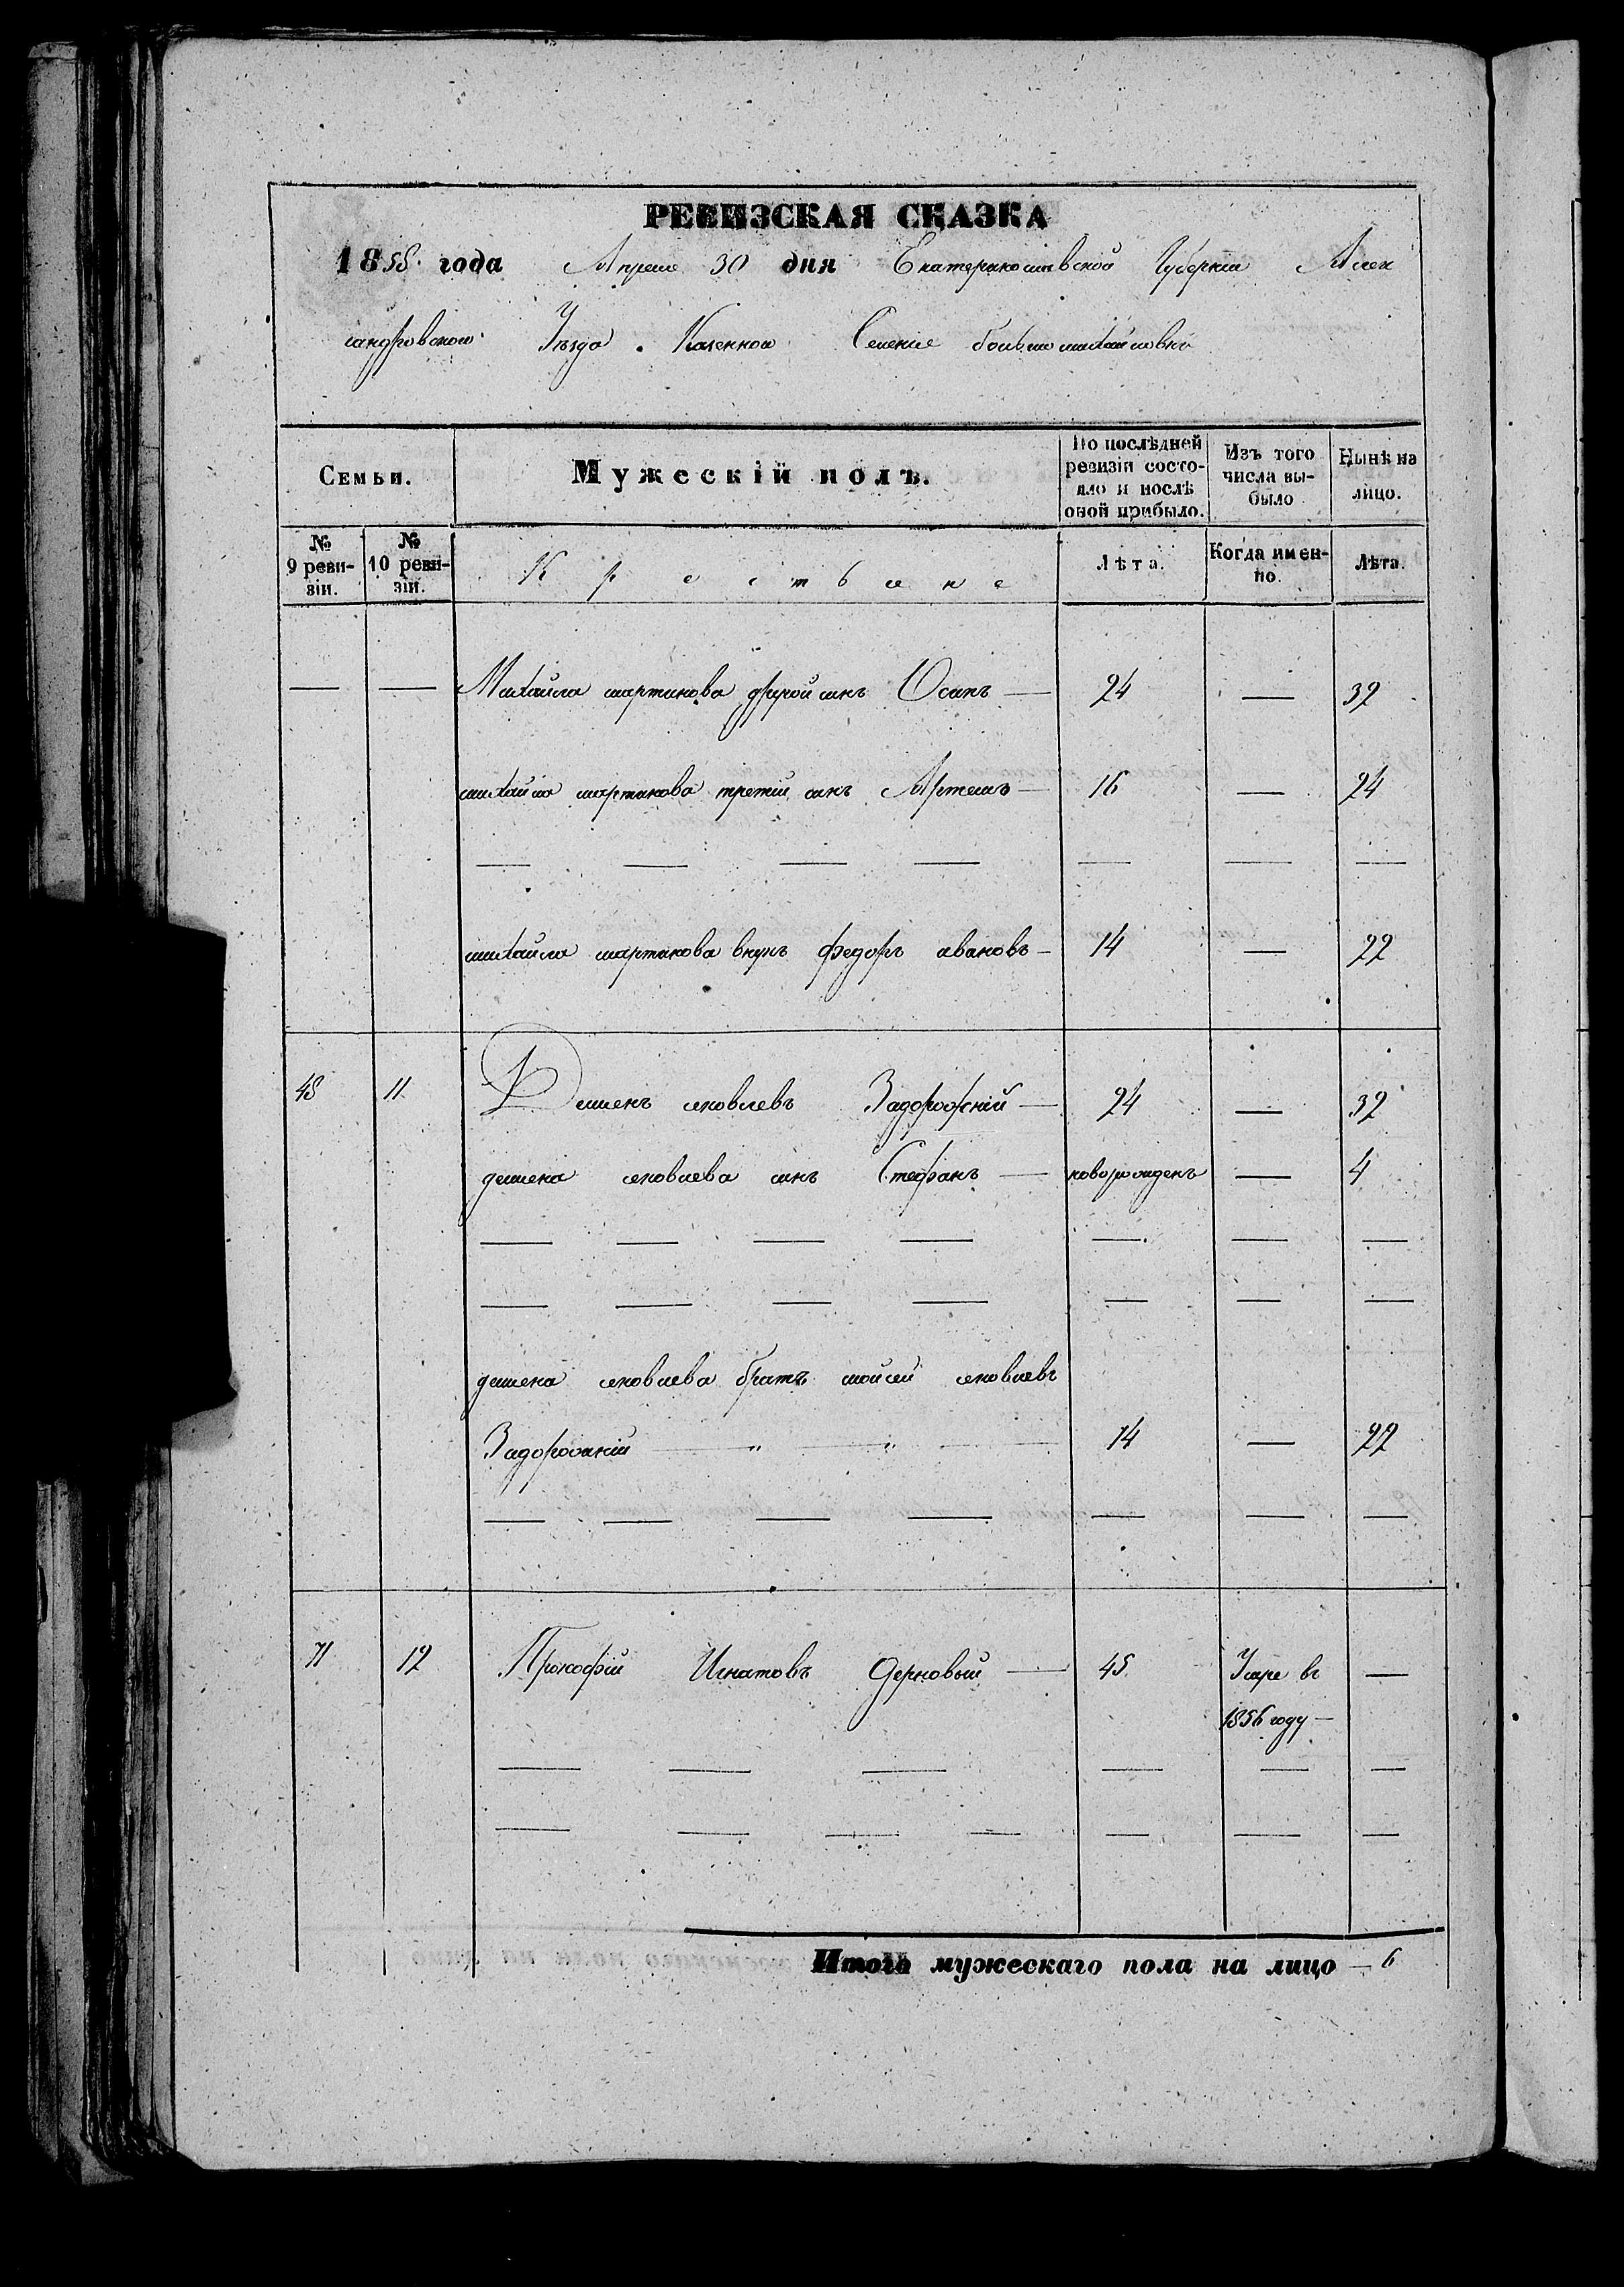 РЕВИЗСКАЯ СКАЗКА
1858 года Апреля 30 дня Екатеринославской Губернии Алек
сандровского Уѣзда Казенного Селенія больше михайловки
Семьи. Мужескій полъ. По послѣдней ревизіи состояло и послѣ оной прибыло. Изъ того числа выбыло Нынѣ на лицо.
№ 9 ревизіи. № 10 ревизіи. Крестьяне Лѣта. Когда именно. Лѣта.
— — Михайла мартинова другой синъ Осипъ — 24 — 32
михайла мартинова третій синъ Артемъ — 16 — 24
— — — — — — —
михайла мартинова внукъ федоръ ивановъ — 14 — 22
48 11 Деменъ яковлевъ Задорожній — 24 — 32
демена яковлева синъ Стефанъ — новорожденъ — 4
— — — — — — —
— — — — — — —
демена яковлева братъ мойсей яковлевъ
Задорожній — " — " — 14 — 22
— — — — — — —
71 12 Прокофій Игнатовъ Дерновый — 45 Умре въ —
1856 году —
— — — — — —
— — — — — — —
Итого мужескаго пола на лицо — 6